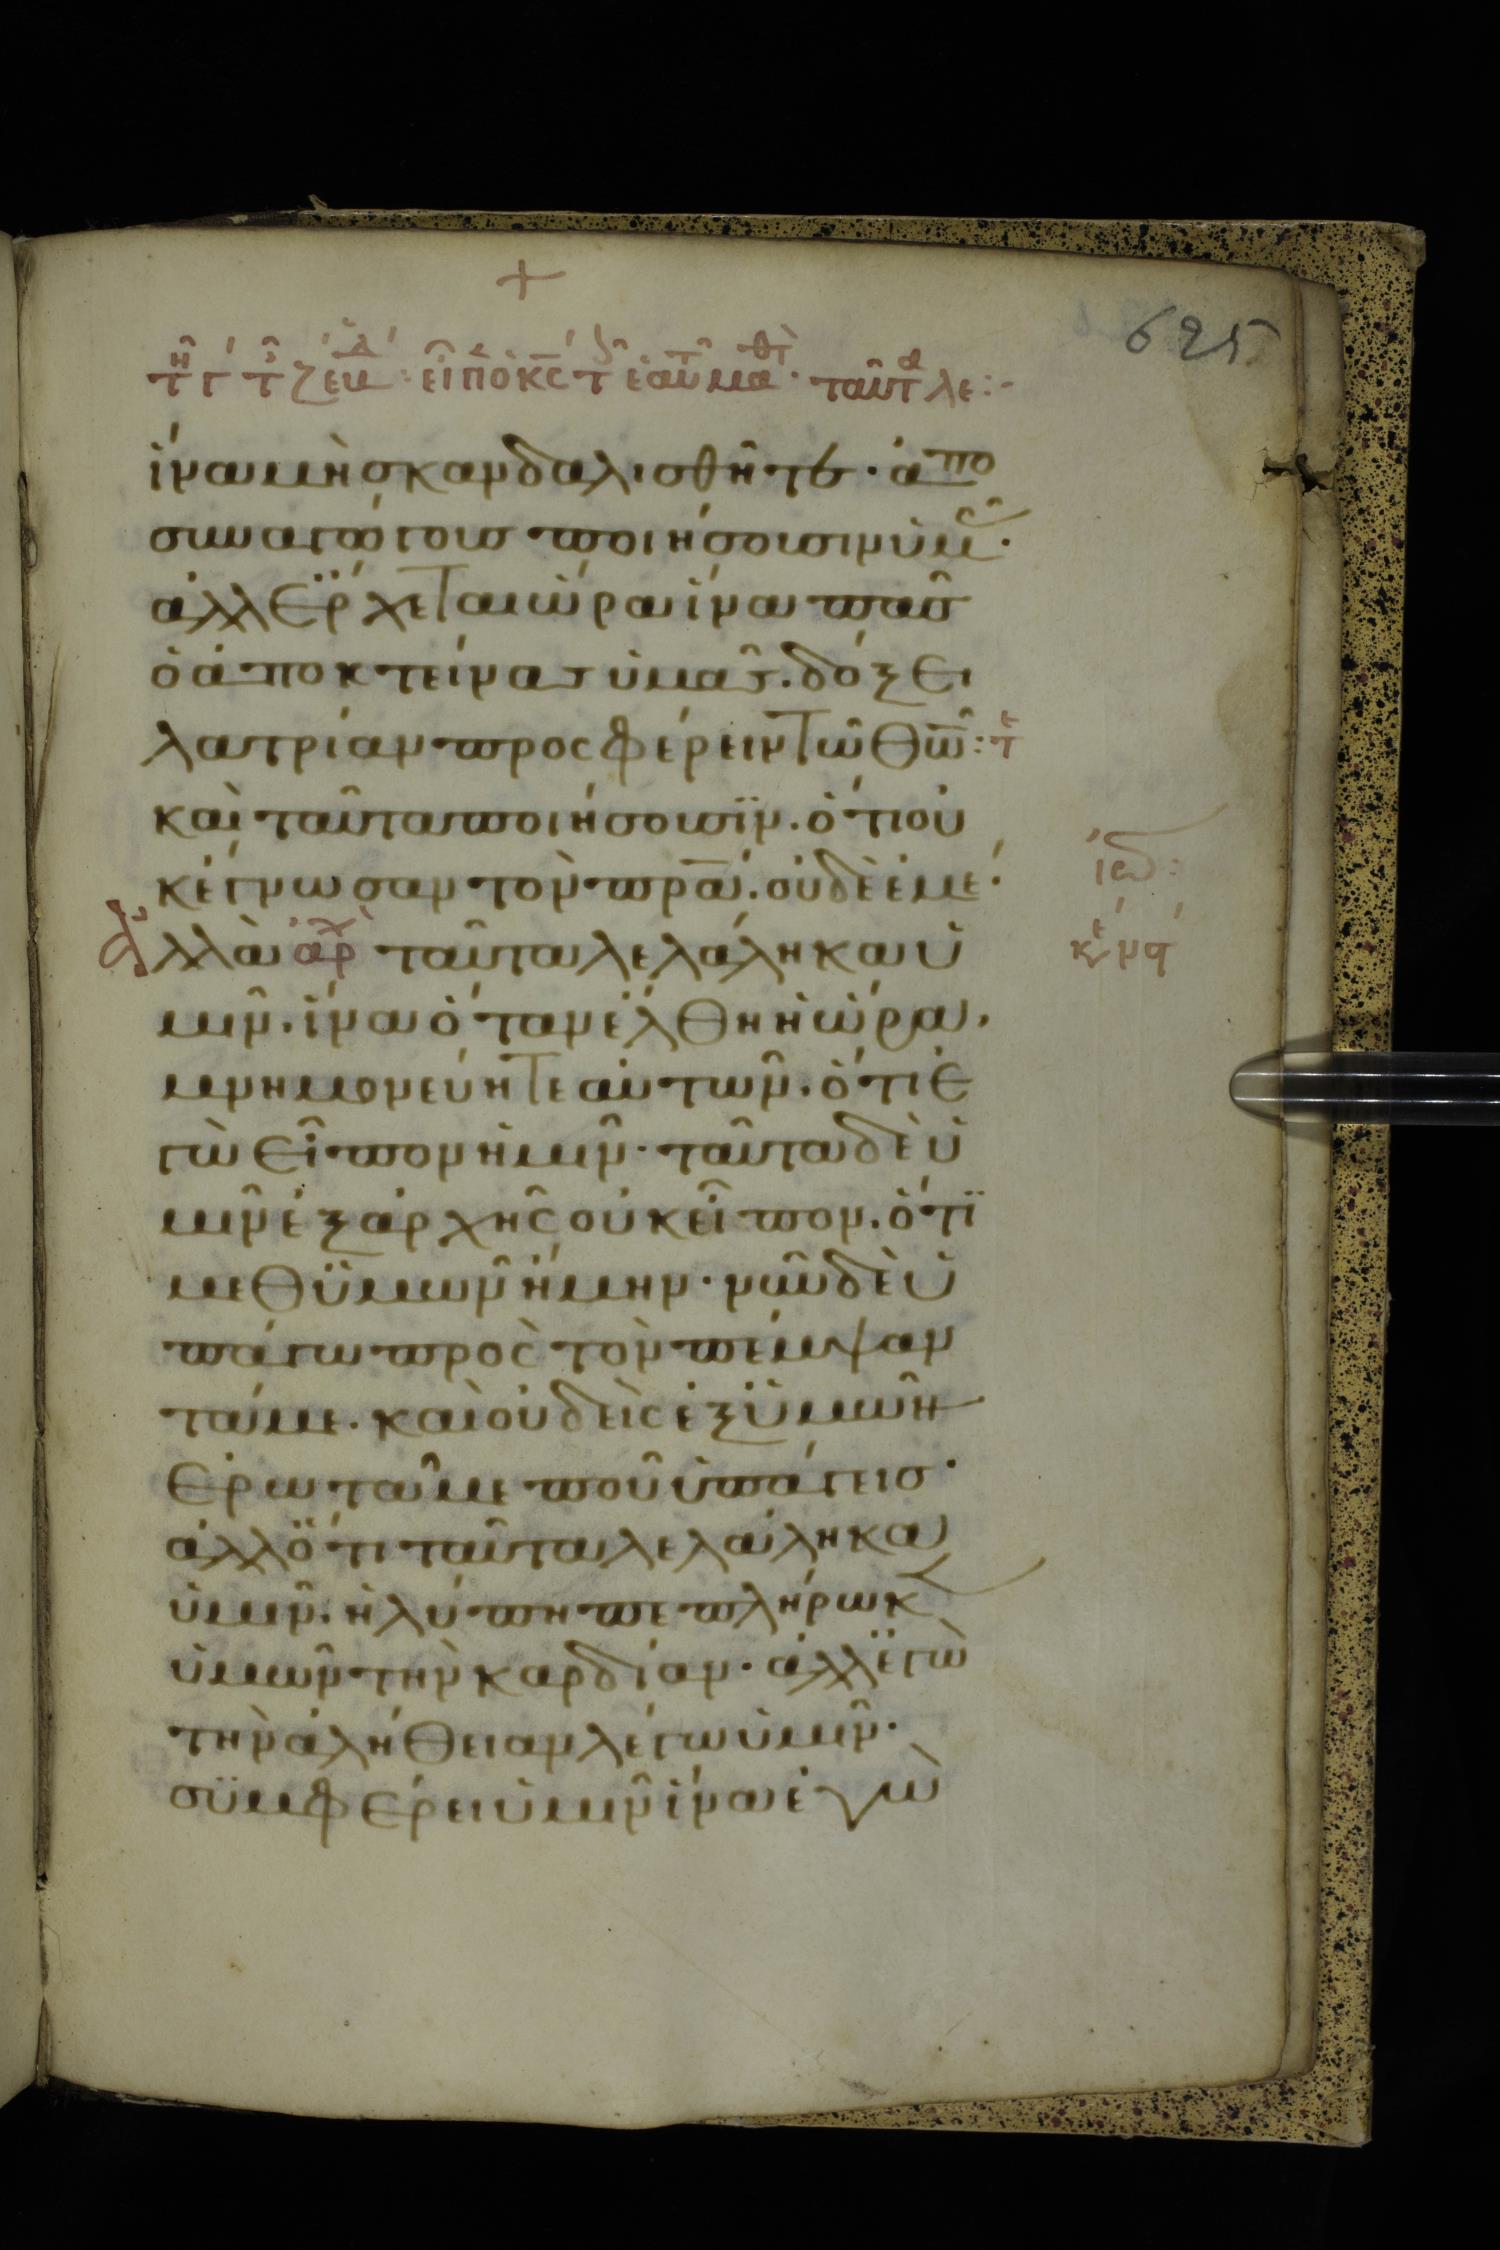 +
625
τῆ γ τ ζ εβδ: εἶπ ὁ κς τ ἑαυτ μαθτ· ταῦτα λε:-
ἵνα μὴ σκανδαλισθῆτε· ἀπο
συναγώγους ποιήσουσιν ὑμᾶς·
ἀλλ ἔρχεται ὥρα ἵνα πᾶς
ὁ ἀποκτείνας ὑμᾶς. δόξει
λατρίαν προσφέρειν τῶ θῶ: τ
καὶ ταῦτα ποιήσουσϊν. ὅτι οὐ
κ ἔγνωσαν τὸν πρα. οὐδὲ ἐμέ·
ἀλλὰ ἀρχ ταῦτα λελάληκα ὑ
μῖν. ἵνα ὅταν ἔλθη ἡ ὥρα.
μνημονεύητε αὐτῶν. ὅτι ἐ
γὼ εἶπον ἡμῖν· ταῦτα δὲ ὑ
μῖν ἐξ ἀρχῆς οὐκ εἶπον. ὅτϊ
μεθ ὑμῶν ἤμην· νῦν δὲ ὑ
πάγω πρὸς τὸν πέμψαν
τά με. καὶ οὐδεὶς ἐξ ὑμῶν
ἐρωτᾶ με ποῦ ὑπάγεισ·
ἀλλ ὅτι ταῦτα λελάληκα
ὑμῖν. ἡ λύπη πεπλήρωκ
ὑμῶν τὴν καρδίαν· ἀλλ ἐγὼ
τὴν ἀλήθειαν λέγω ὑμῖν·
σϋμφέρει ὑμῖν ἵνα ἐγὼ